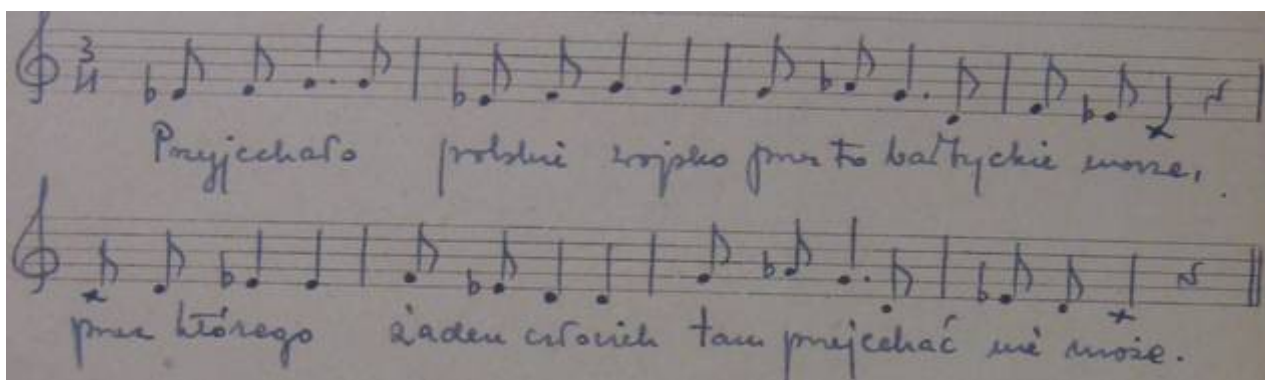 3
4
Przyjechało polskie wojsko przez to bałtyckie morze,
przez którego żaden człowiek tam przejechać nie może.